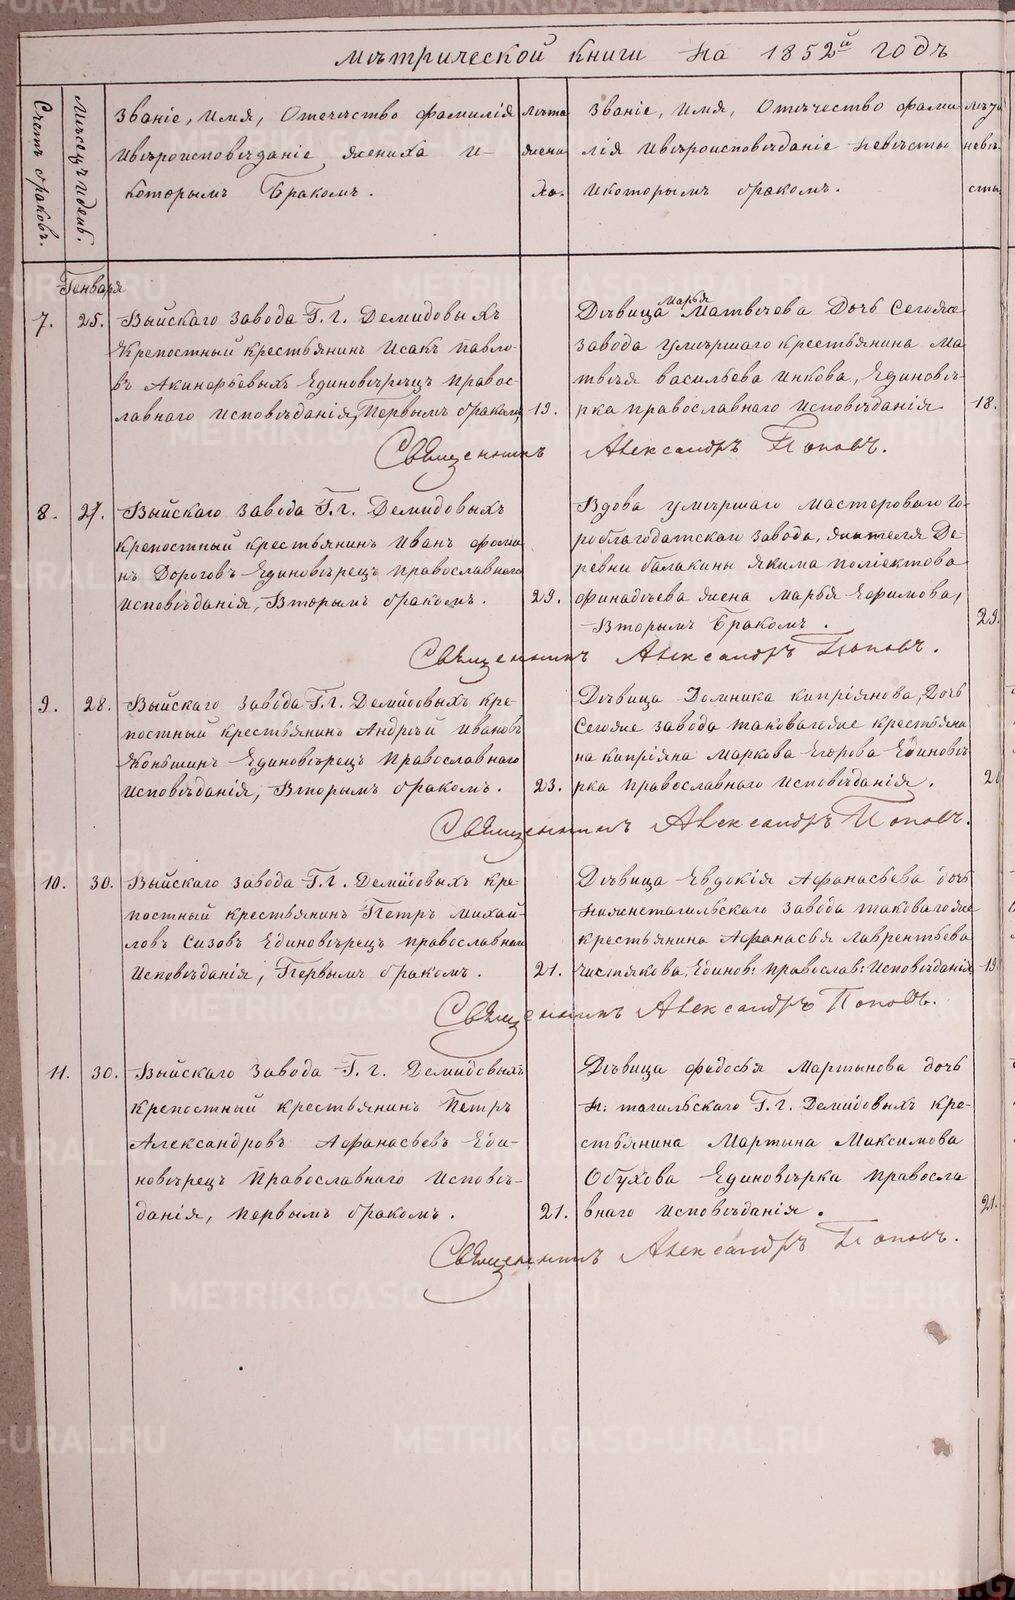 метрической книги на 1852й годъ
Счетъ браковъ.
Месецъ и день.
Званіе, Имя, Отечество фамилія
Ивѣроисповѣданіе жениха и
которымъ Бракомъ.
Лѣта
жени
ха.
Званіе, Имя, Отечество фами
лія Ивѣроисповѣданіе невѣсты
Икоторымъ бракомъ.
невѣ
сты
Генваря
7. 25. Выйскаго завода Г. г. Демидовыхъ
Крепостный крестьянинъ Исакъ Павло-
въ Акинфьевыхъ Единовѣрецъ Правос-
лавнаго исповѣданія, Первымъ бракомъ, 19.
Дѣвица Марья Матвѣева Дочь Сегоже
завода умѣршаго крестьянина Ма
твѣя васильева Инкова, Единовѣ-
рка православнаго Исповѣданія 18.
Священникъ Александръ Поповъ.
8. 27. Выйскаго завода Г. г. Демидовыхъ
крепостный крестьянинъ Иванъ фоми
нъ Дороговъ Единовѣрецъ православнаго
исповѣданія, Вторымъ бракомъ. 29.
Вдова умѣршаго мастероваго Го-
роблагодатскаго завода, жителя Де
ревни балакины якима поліектова
Финадѣева жена Марья Ефимова,
Вторымъ Бракомъ. 29.
Священникъ Александръ Поповъ.
9. 28. Выйскаго завода Г. г. Демидовыхъ кре-
постный крестьянинъ Андрѣй Ивановъ
Коньшинъ Единовѣрецъ Православнаго
Исповѣданія, Вторымъ бракомъ. 23.
Дѣвица Домника кипріянова, Дочь
Сегоже завода таковагоже крестьяни
на кипріяна Маркова Егорова Единовѣ
рка православнаго Исповѣданія.
Священникъ Александръ Поповъ.
10. 30. Выйскаго завода Г. г. Демидовыхъ кре
постный крестьянинъ Петръ михай-
ловъ Сизовъ Единовѣрецъ православнаго
Исповѣданія, Первымъ бракомъ. 21.
Дѣвица Евдокія Афанасьева дочь
нижнетагильскаго завода таковагоже
крестьянина Афанасья Лаврентьева
чистякова, Единов: православ: Исповѣданія 19
Священникъ Александръ Поповъ.
11. 30. Выйскаго завода Г. г. Демидовыхъ
крепостный крестьянинъ Петръ
Александровъ Афанасьевъ Еди-
новѣрецъ Православнаго Исповѣ-
данія, первымъ бракомъ. 21.
Дѣвица федосья Мартынова дочь
Н: тагильскаго Г. г. Демидовыхъ кре-
стьянина Мартина Максимова
Обухова Единовѣрка православ
внаго исповѣданія. 21.
Священникъ Александръ Поповъ.
METRIKI.GASO-URAL.RU